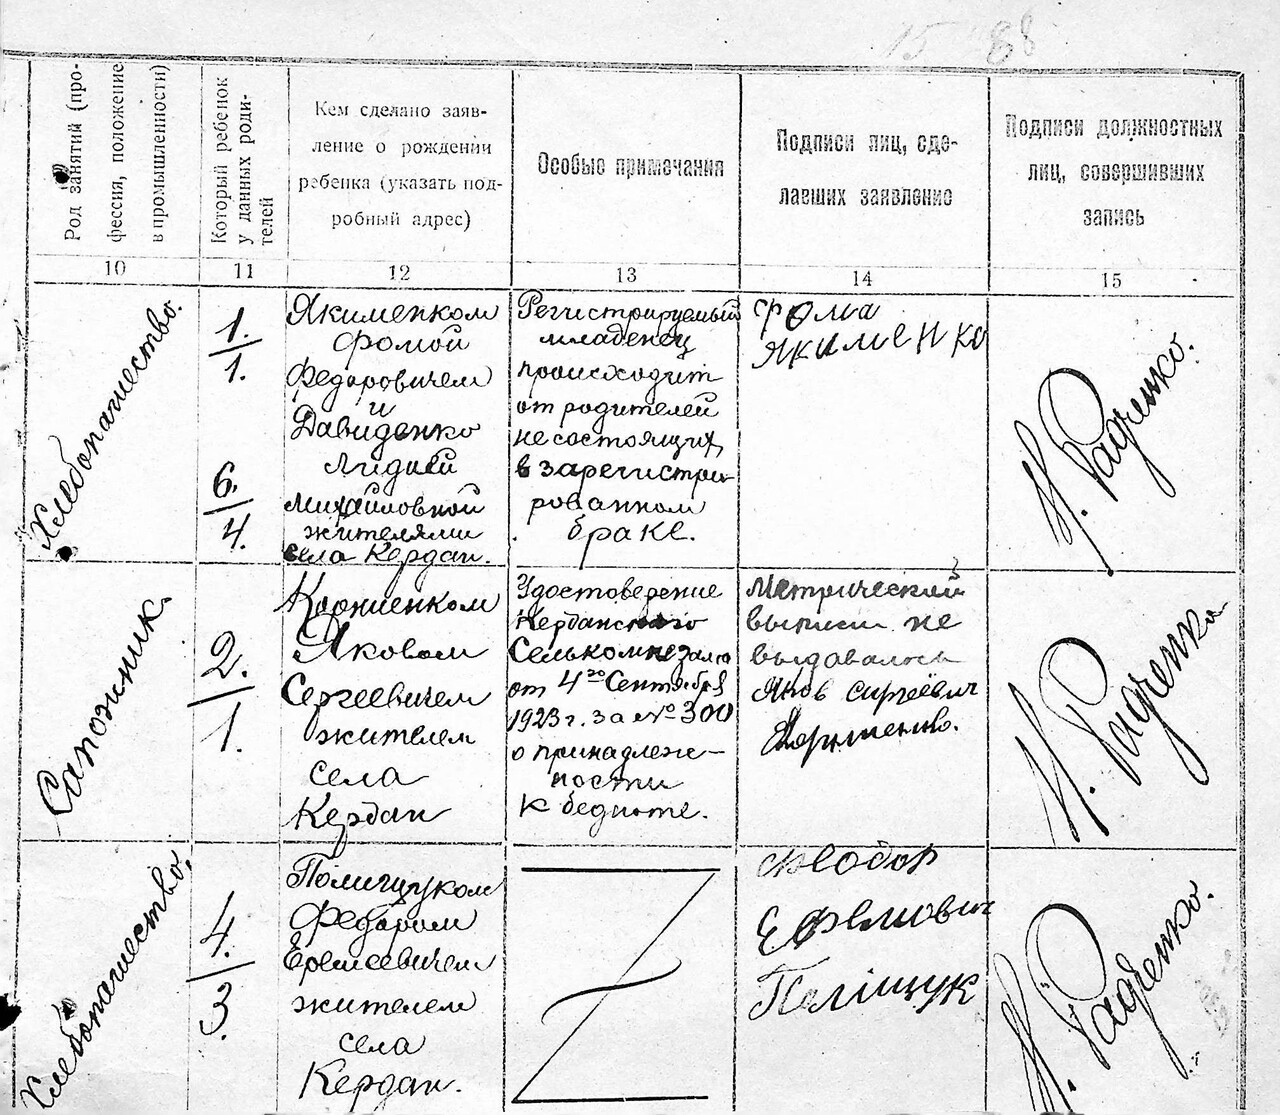 15 88
Род занятий (про-
фессия, положение
в промышленности)
Который ребенок
у данных роди-
телей
Кем сделано заяв-
ление о рождении
ребенка (указать под-
робный адрес)
Особые примечания
Подписи лиц, сде-
лавших заявление
Подписи должностных
лиц, совершивших
запись
10
11
12
13
14
15
Хлебопашество.
1.
1.
6.
4.
Якименком
Фомой
Федоровичем
и
Давиденко
Лидией
Михайловной
жителями
села Кердан.
Регистрируемый
младенец
происходит
от родителей
не состоящих
в зарегистри-
рованном
браке.
Фома
Якименко
Н. Радченко.
Сапожник.
2.
1.
Корниенком
Яковом
Сергеевичем
жителем
села
Кердан
Удостоверение
Керданского
Селькомнезама
от 4го Сентября
1923 г. за № 300
о принадлеж-
ности
к бедноте.
Метрической
выписи не
выдавалось
Яков Сиргеевич
Корниенко.
Н. Радченко
Хлебопашество.
4.
3.
Полищуком
Федором
Еремеевичем
жителем
села
Кердан.
Феодор
Поліщук
Н. Радченко.